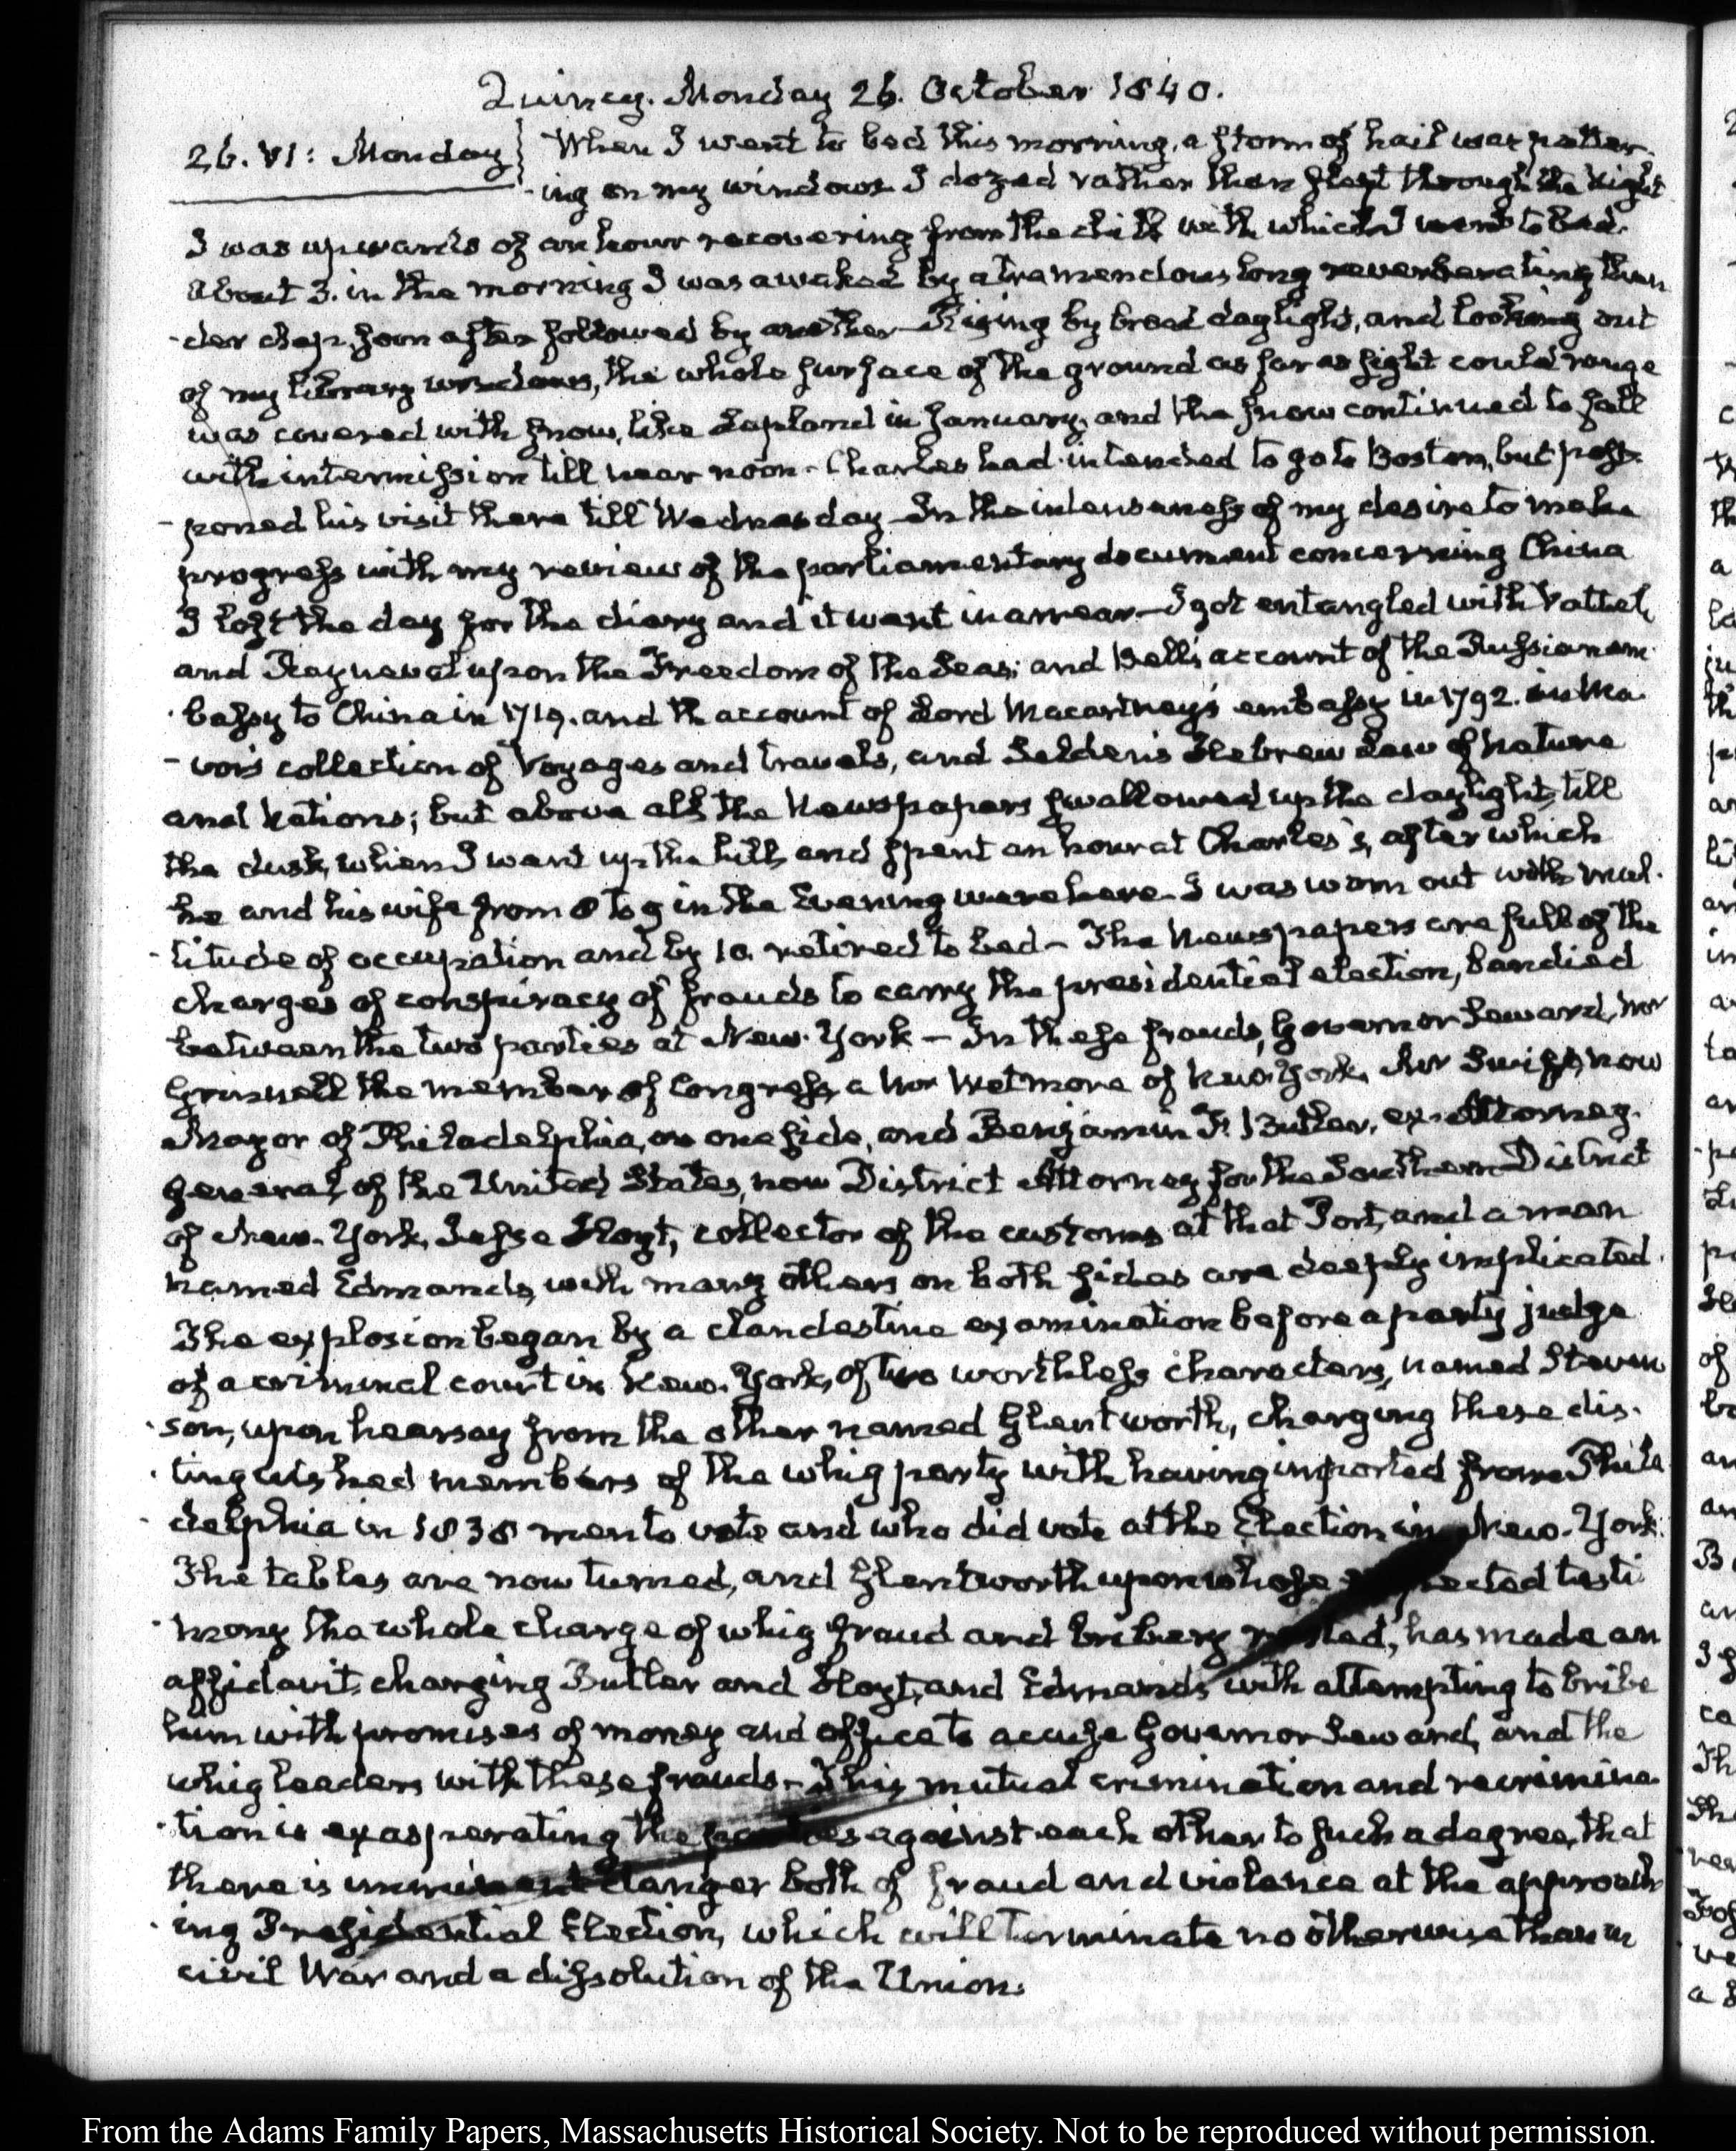 Quincy. Monday 26. October 1840.
26. VI: Monday} When I went to bed this morning, a storm of hail was patter-
-ing on my windows. I dozed rather than slept through the Night
I was upwards of an hour recovering from the chill with which I went to bed.
About 3. in the morning I was awaked by a tremendous long reverberating thun
-der clap. soon after followed by another—Rising by broad daylight, and looking out
of my library windows, the whole surface of the ground as far as sight could range
was covered with snow, like Lapland in January, and the snow continued to fall
with intermission till near noon—Charles had intended to go to Boston, but post-
-poned his visit there till Wednesday—In the intenseness of my desire to make
progress with my review of the parliamentary document concerning China
I lost the day for the diary and it went in arrear—I got entangled with Vattel,
and Rayneval upon the Freedom of the Seas; and Bell's account of the Russian em-
-bassy to China in 1719. and the account of Lord Macartney's embassy in 1792. in Ma-
-vor's collection of Voyages and travels, and Selden's Hebrew Law of Nature
and Nations; but above all the Newspapers swallowed up the daylight, till
the dusk, when I went up the hill, and spent an hour at Charles's, after which
he and his wife from 8 to 9 in the Evening were here. I was worn out with mul-
-titude of occupation and by 10. retired to bed—The Newspapers are full of the
charges of conspiracy of frauds to carry the presidential election, bandied
between the two parties at New-York—In these frauds, Governor Seward, Mr
Grinnell the member of Congress, a Mr Wetmore of New-York, Mr Swift, now
Mayor of Philadelphia, on one side, and Benjamin F. Butler, ex-Attorney-
general of the United States, now District Attorney for the Southern District
of New-York, Jesse Hoyt, collector of the customs at that Port, and a man
named Edmands, with many others on both sides are deeply implicated.
The explosion began by a clandestine examination before a party judge
of a criminal court in New-York, of two worthless characters, named Steven
-son, upon hearsay from the other named Glentworth, charging these dis-
-tinguished members of the whig party with having imported from Phila
-delphia in 1838 men to vote and who did vote at the Election in New-York.
The tables are now turned, and Glentworth upon whose expected testi
-mony the whole charge of whig fraud and bribery rested, has made an
affidavit, charging Butler and Hoyt, and Edmands with attempting to bribe
him with promises of money and office to accuse Governor Seward, and the
whig leaders with these frauds—This mutual crimination and recrimina-
-tion is exasperating the parties against each other to such a degree, that
there is imminent danger both of fraud and violence at the approach
-ing Presidential Election, which will terminate no otherwise than in
civil War and a dissolution of the Union.
From the Adams Family Papers, Massachusetts Historical Society. Not to be reproduced without permission.